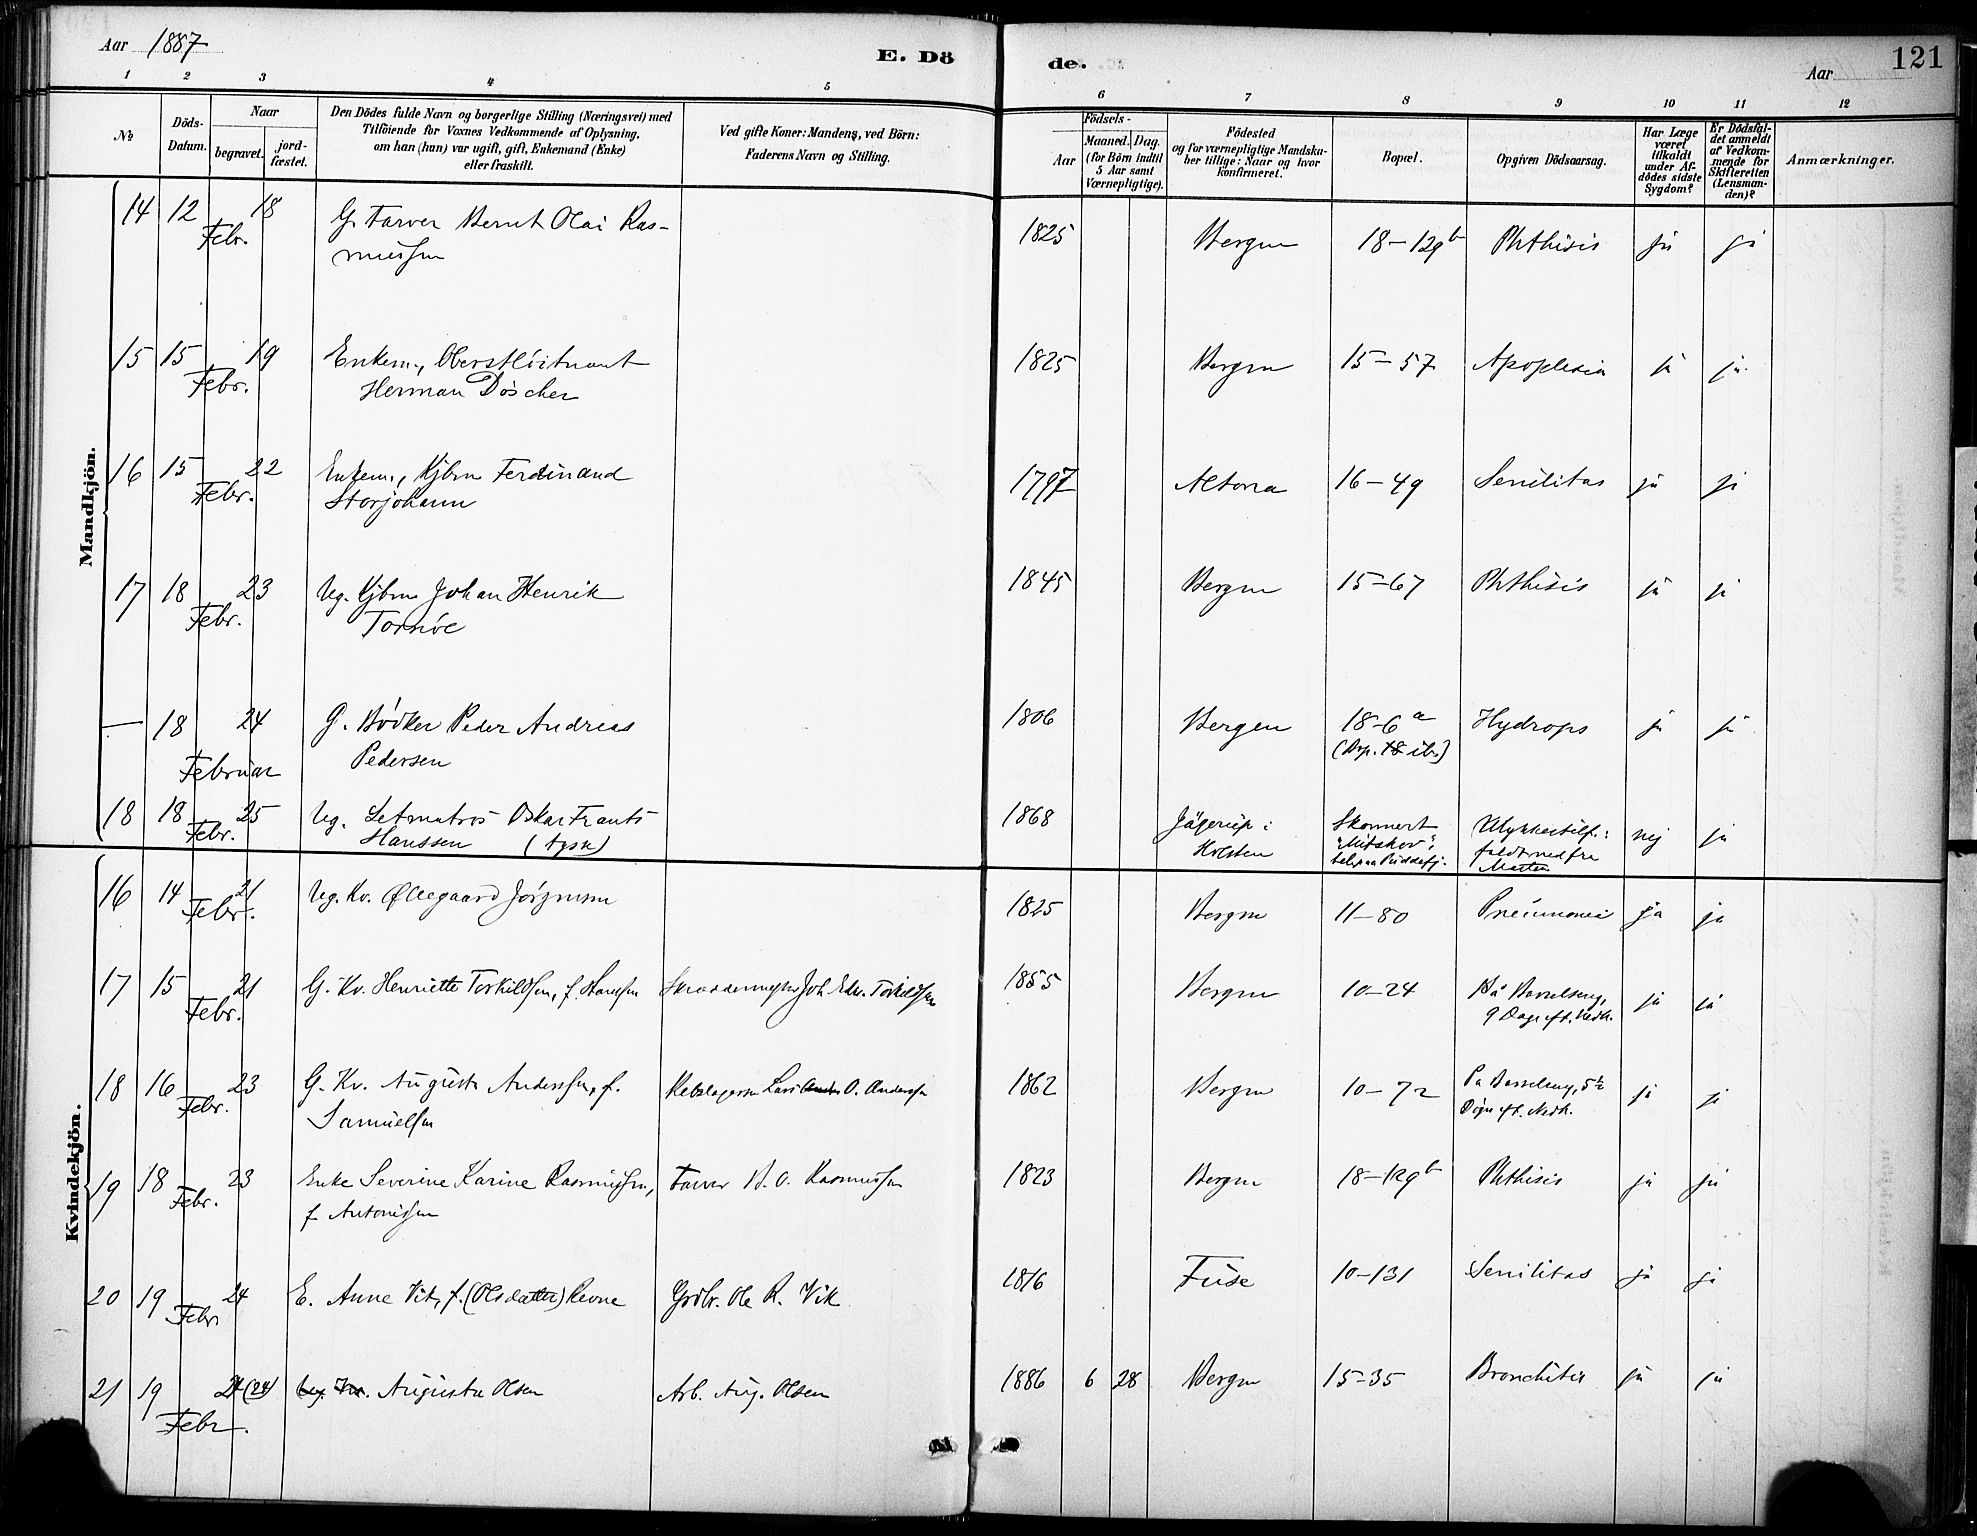 Aar 1887
E. Dö
de.
Aar
121
1 2 3 4 5 6 7 8 9 10 11 12
No
Döds-
Datum.
Naar
begravet.
jord-
fæstet.
Den Dödes fulde Navn og borgerlige Stilling (Næringsvei) med
Tilföiende for Voxnes Vedkommende af Oplysning,
om han (hun) var ugift, gift, Enkemand (Enke)
eller fraskilt.
Ved gifte Koner: Mandens, ved Börn:
Faderens Navn og Stilling.
Födsels-
Aar
Maaned. Dag.
(for Börn indtil
5 Aar samt
Værnepligtige).
Födested
og for værnepligtige Mandska-
ber tillige: Naar og hvor
konfirmeret.
Bopæl.
Opgiven Dödsaarsag.
Har Læge
været
tilkaldt
under Af-
dödes sidste
Sygdom?
Er Dödsfal-
det anmeldt
af Vedkom-
mende for
Skifteretten
(Lensman-
den)?
Anmærkninger.
Mandkjön.
14 12 18 G. Farver Bernt Olai Ras- 1825 Bergen 18-129b Phthisis ja ja
Febr. mussen
15 15 19 Enkem., Oberstløitnant 1825 Bergen 15-57 Apoplexia ja ja
Febr. Herman Döscher
16 15 22 Enkem., Kjbm Ferdinand 1797 Altona 16-49 Senilitas ja ja
Febr. Storjohann
17 18 23 Ug. Kjbm Johan Henrik 1845 Bergen 15-67 Phthisis ja ja
Febr. Tornöe
— 18 24 G. Bödker Peder Andreas 1806 Bergen 18-6a Hydrops ja ja
Februar Pedersen
18 18 25 Ug. Letmatros Oskar Frants 1868 Jägerup i Skonnert Ulykkestilf: nej ja
Febr. Hanssen (tysk) Holsten faldt ned fra
Masten
Kvindekjön.
16 14 21 Ug. Kv. Øllegaard Jörgensen 1825 Bergen 11-80 Pneumonia ja ja
Febr.
17 15 21 G. Kv. Henriette Torkildsen, f. Hansen Skræddermester Joh. Edv. Torkildsen 1855 Bergen 10-24 På Barselseng, ja ja
Febr. 9 Dage eft. Nedk.
18 16 23 G. Kv. Augusta Anderssen, f. Rebslagersv. Lars O. Anderssen 1862 Bergen 10-72 Pa Barselseng, 5½ ja ja
Febr. Samuelsen Dögn eft. Nedk.
19 18 23 Enke Severine Karine Rasmussen, Farver B. O. Rasmussen 1823 Bergen 18-129b Phthisis ja ja
Febr. f. Antonissen
20 19 24 E. Anne Vik, f. (Olsdatter) Revne Grdbr. Ole R. Vik 1816 Fuse 10-131 Senilitas ja ja
Febr
21 19 24 (24) Ug. Kv. Augusta Olsen Arb. Aug. Olsen 1886 6 28 Bergen 15-35 Bronchitis ja ja
Febr.